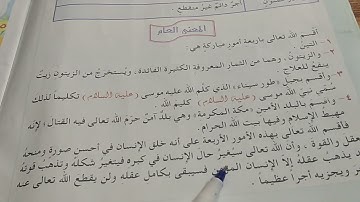 أجرٌ دائمٌ غيرُ منقطعٍ
المعنى العام
أقسم الله تعالى بأربعة أمورٍ مباركةٍ هي
١- التين.
٢- والزيتون، وهما من الثمار المعروفة الكثيرة الفائدة، ويُستخرجُ من الزيتون زيتٌ
ينفعُ للعلاج.
٣- وأقسم بجبل «طور سيناء» الذي كلّم الله عليه موسى (عليه السلام) تكليماً لذلك
سُمّي نبيّ الله موسى (عليه السلام) كليم الله.
وأقسم بالبلد الأمين (مكة المكرمة)، وهي بلدٌ آمنٌ حرّم الله تعالى فيه القتال؛ لأنه
مهبط الإسلام وفيها بيت الله الحرام.
فأقسم الله تعالى بهذه الأمور الأربعة على أنه خلق الإنسان في أحسن صورةٍ ومنحهُ
العقل والقوة، وأن الله تعالى سيُغيّرُ حال الإنسان في كبره فيتغيرُ شكلهُ وتذهبُ قوتهُ
يذهبُ عقلهُ إلا الإنسان فسيبقى بكامل عقله ولن يقطع الله تعالى عنه
ويجزيه أجراً عظيماً.